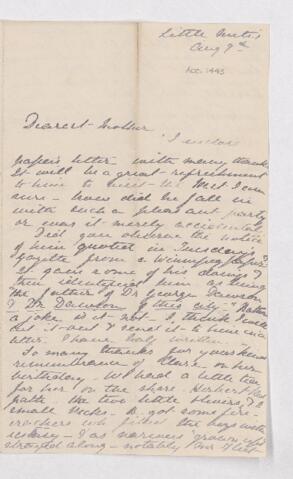 Little Metis
Aug 9th
Acc. 1443
Dearest Mother
I enclose
papa's letter with many thanks
It will be a great refreshment
to him to meet the
sure - how did he fall in
with such a pleasant party
or was it merely accidental
Did you observe the notice
of him quoted in Tuesday's
Gazette from a Winnipeg paper?
It gives some of his doings &
then identified him as being
the father of Dr George Dawson
& Dr Dawson of this city - Rather
a joke is it not - I think I will
cut it out & send it to him in a
letter I have half written.
So many thanks for your kind
remembrance of Clare on her
birthday. We had a little tea
for her on the shore.
the two little
small
got some fire-
crackers wh filled the boys with
ecstasy - & as various "grown ups"
strayed along - notably